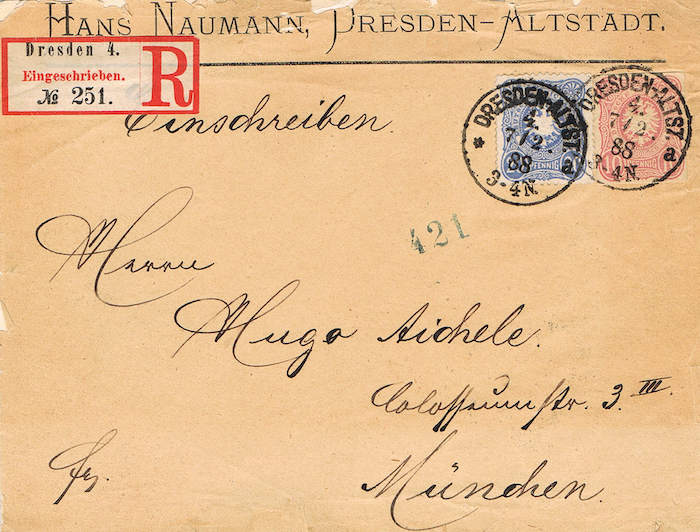 HANS NAUMANN, DRESDEN-ALTSTADT.
Dresden 4.
Eingeschrieben.
№ 251.
R
Einschreiben.
DRESDEN-ALTST.
4.
7/2.
88
3-4N.
* a
PFENNIG
DRESDEN-ALTST.
4.
7/2.
88
3-4N.
a
10 PFENNIG 10
421
Herrn
Hugo Aichele.
Colosseumstr. 3. III.
Fr.
München.